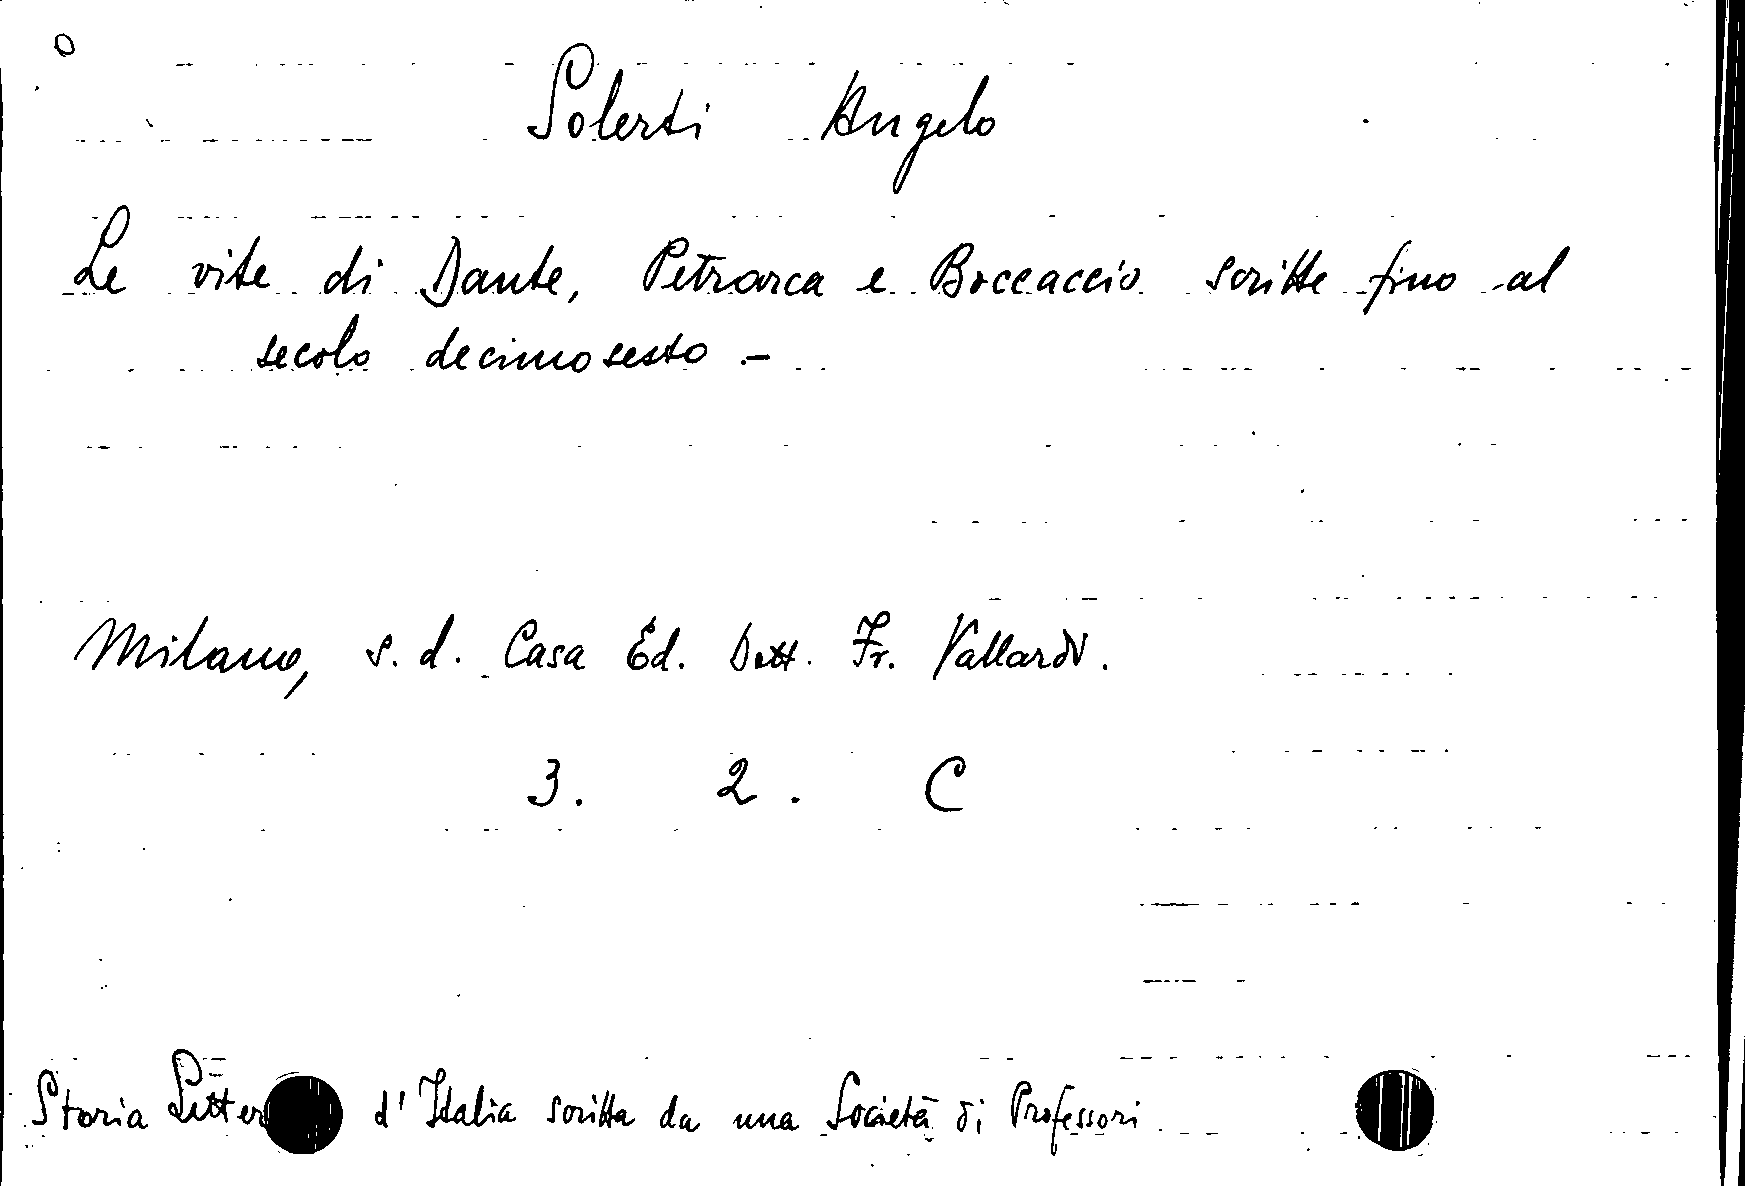 Solerti Angelo
Le vite di Dante, Petrarca e Boccaccio scritte fino al
secolo decimosesto -
Milano, s. d. Casa Ed. Dott. Fr. Vallardi.
3. 2. C
Storia Letter d'Italia scritta da una Società di Professori